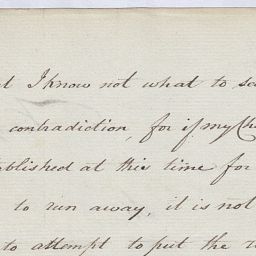 I know not what to
contradiction, for if my
at this time for
to run away, it is not
to attempt to put the